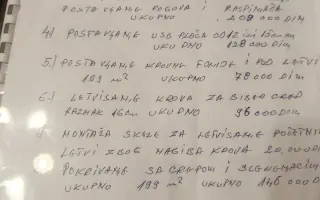 POSTAVLJANJE ROGOVA I RASPINJAČA
UKUPNO 208 000 DIN
4.) POSTAVLJANJE USB PLOČA OD 12 ili 15mm
UKUPNO 128 000 DIM
5.) POSTAVLJANJE KROVNE FOLIJE I POD LETVI
199 m² UKUPNO 78 000 DIN
6.) LETVISANJE KROVA ZA BIBER CREP
RAZMAK 16cm UKUPNO 96 000 DIN
MONTAŽA SKELE ZA LETVISANJE POČETNIH
LETVI ZBOG NAGIBA KROVA 20.000 DIN
POKRIVANJE SA CREPOM I SLEMENACIMA
UKUPNO 199 m² UKUPNO 145 000 DIN